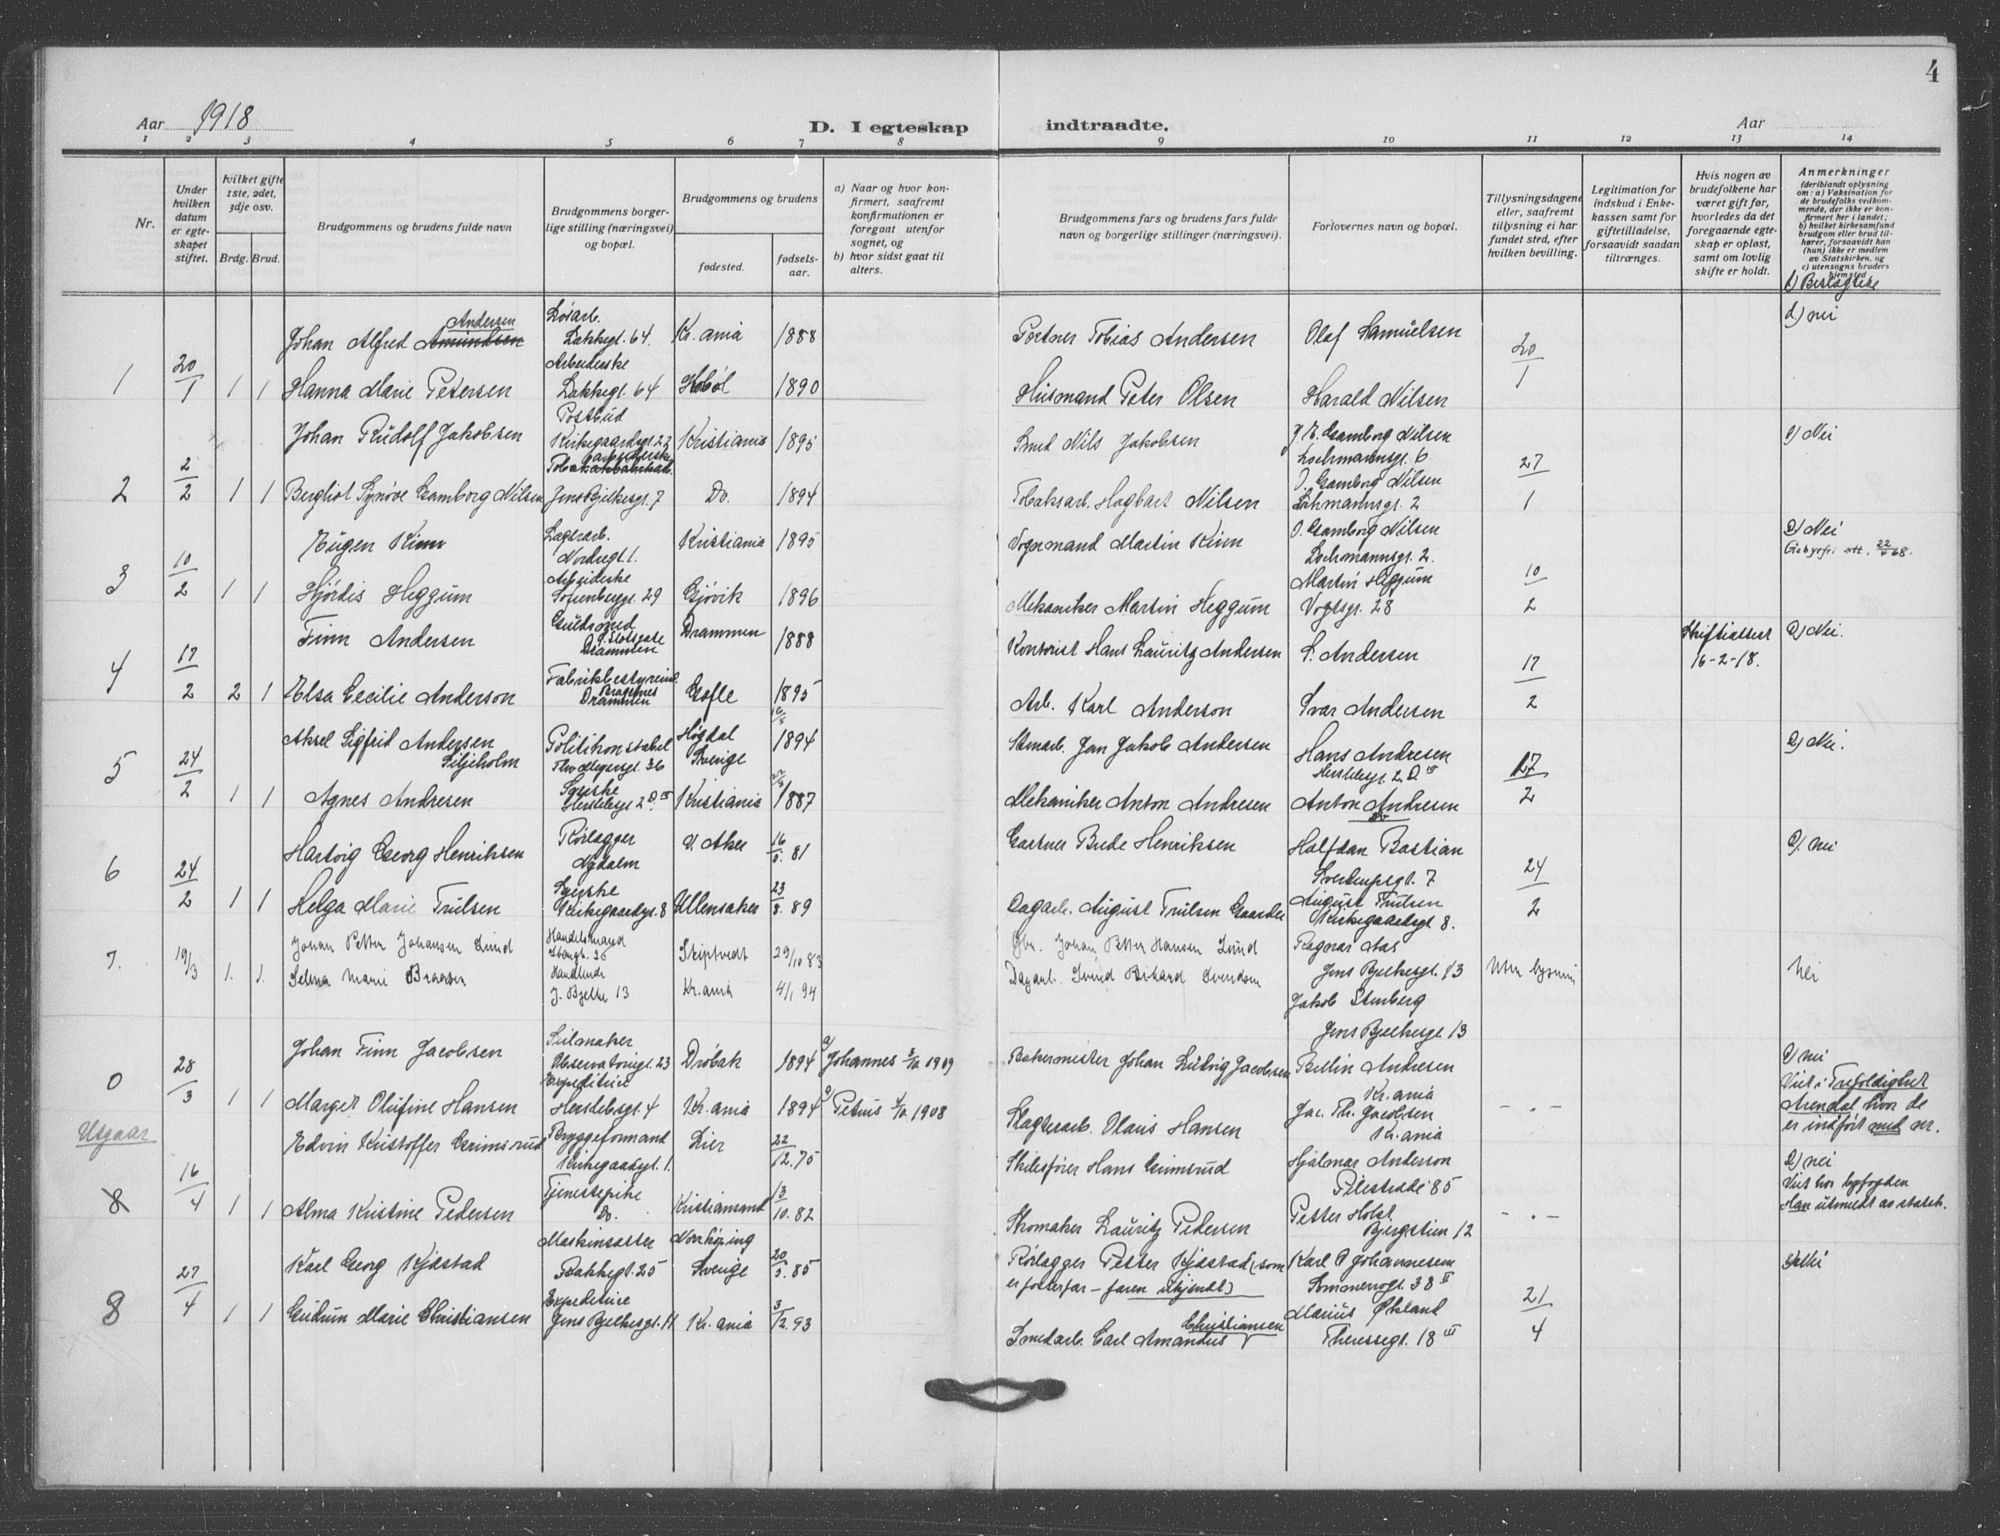 4
Aar 1918
D. I egteskap
indtraadte.
Aar
1 2 3 4 5 6 7 8 9 10 11 12 13 14
Nr.
Under hvilken datum er egteskapet stiftet.
hvilket gifte 1ste, 2det, 3dje osv.
Brdg. Brud.
Brudgommens og brudens fulde navn
Brudgommens borgerlige stilling (næringsvei) og bopæl.
Brudgommens og brudens
fødested.
fødselsaar.
a) Naar og hvor konfirmert, saafremt konfirmationen er foregaat utenfor sognet, og
b) hvor sidst gaat til alters.
Brudgommens fars og brudens fars fulde navn og borgerlige stillinger (næringsvei).
Forlovernes navn og bopæl.
Tillysningsdagene eller, saafremt tillysning ei har fundet sted, efter hvilken bevilling.
Legitimation for indskud i Enkekassen samt for giftetilladelse, forsaavidt saadan tiltrænges.
Hvis nogen av brudefolkene har været gift før, hvorledes da det foregaaende egteskap er opløst, samt om lovlig skifte er holdt.
Anmerkninger
(deriblandt oplysning om: a) Vaksination for de brudefolks vedkommende, der ikke er konfirmert her i landet; b) hvilket kirkesamfund brudgom eller brud tilhører, forsaavidt han (hun) ikke er medlem av Statskirken, og c) utensogns bruders hjemsted
d) Beslegtede
Andersen
Johan Alfred Amundsen Løsarb. Lakkegt. 64. Kr.ania 1888 Portner Tobias Andersen Olaf Samuelsen 20/1 d) nei
1 20/1 1 1 Hanna Marie Petersen Arbeiderske Lakkegt. 64 Hobøl 1890 Husmand Peter Olsen Harald Nilsen
Johan Rudolf Jakobsen Postbud Kirkegaardsgt. 22 Kristiania 1895 Smed Nils Jakobsen Gamborg Nilsen Lochmannsgt. 6 27/1 d) Nei
2 2/2 1 1 Bergliot Synøve Gamborg Nilsen Jens Bjelkesgt. 7 Do. 1894 Tobaksarb. Hagbart Nilsen J. Gamborg Nilsen Lochmannsgt. 2
Eugen Kinn Lagerarb. Nordregt. 1. Kristiania 1895 Vognmand Martin Kinn J. Gamborg Nilsen Lochmannsgt. 2. 10/2 d) Nei
3 10/2 1 1 Hjørdis Heggum Arbeiderske Sofienbergt. 29 Gjøvik 1896 Mekaniker Martin Heggum Martin Heggum Vogtsgt. 28
Finn Andersen Guldsmed Drammen Drammen 1888 Kontorist Hans Lauritz Andersen S. Andersen 17/2 Skifteattest 16-2-18. d) Nei.
4 17/2 2 1 Elsa Cecilie Anderson Fabrikbestyrerinde Bragernes Drammen Gefle 1895 Arb. Karl Anderson Ivar Andersen
Aksel Sigfrid Andersen Siljeholm Politikonstabel Thv. Meyersgt. 36 Høgdal Sverige 1894 Stenarb. Jan Jakob Andersen Hans Andresen Herslebsgt. 2 17/2 d) Nei.
5 24/2 1 1 Agnes Andresen Syerske Herslebsgt. 2 Kristiania 1887 Mekaniker Anton Andresen Anton Andresen
Hartvig Georg Henriksen Rørlægger Nydalen V. Aker 81 Gartner Bude Henriksen Halfdan Bastian 24/2 d) nei
6 24/2 1 1 Helga Marie Trulsen Syerske Kirkegaardsgt. 8 Ullensaker 23/8. 89 Dagarb. August Trulsen Gaarder August Trulsen Kirkegaardsgt. 8.
7. 19/3 1. 1. Johan Petter Johansen Lund Handelsmand Skiptvedt 29/10 83 Johan Petter Hansen Lund Ragnar Aas Jens Bjelkesgt. 13 Uten lysning Nei
Selma Marie Braaten Handlende J. Bjelke 13 Kr.ania 4/1 94 Dagarb. Svend Rikard Svendsen Jakob Stenberg Jens Bjelkesgt. 13
Johan Finn Jacobsen Seilmaker Observatoriegt. 23 Drøbak 1894 a) Johannes 1909 Bakermester Johan Ludvig Jacobsen Bellin Andresen Kr.ania d) nei
0 28/3 1 1 Margit Olufine Hansen Expeditrice Herslebsgt. 4 Kr.ania 1894 a) Petrus 1908 Slagterarb. Olaus Hansen Jac. Th. Jacobsen Kr.ania - . - Viet i Trefoldighet Arendal hvor de er indført med nr.
Utgaar
Edvin Kristoffer Grimsrud Bryggeformand Kirkegaardsgt. 1. Lier 22/12. 75 Skibsfører Hans Grimsrud Hjalmar Anderson Pilestrade 85 d) nei
8 16/4 1 1 Alma Kristine Pedersen Tjenestepike Do. Kristiansand 13/10. 82 Skomaker Lauritz Pedersen Petter Holst Bjergstien 12 - . - Viet hos byfogden Han utmeldt av statsk.
Karl Georg Kjøstad Maskinsætter Bakkegt. 25 Norrköping Sverige 20/5. 85 Rørlægger Petter Kjøstad (som er fosterfar - faren ukjendt) Karl P Johannesen Sommerrogt. 38 II 21/4 Nei
8 27/4 1 1 Gudrun Marie Christiansen Expeditrice Jens Bjelkesgt. 11 Kr.ania 3/12. 93 Smedarb. Carl Amandus Christiansen Marius Økland Theresegt. 18 III